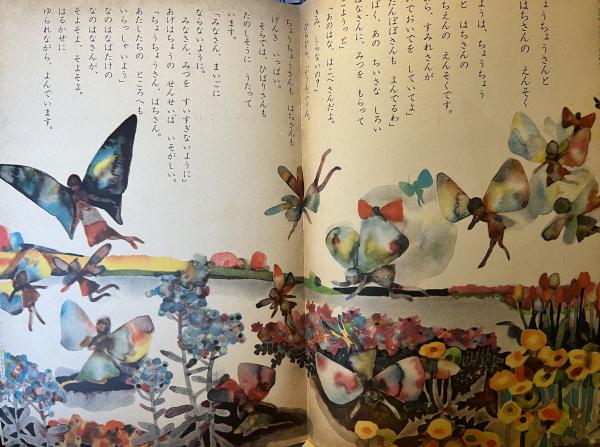 ょうちょうさんと
はちさんの えんそく
ょうは、ちょうちょう
と はちさんの
ちえんの えんそくです。
ら すみれさんが
ておいでを していてよ」
たんぽぽさんも よんでるわ」
なさんに みつを もらって
ようっと」
ばく、あの ちいさな しろい
「あのはな、はこべさんだよ。
ちょうちょうさんも はちさんも
げんき いっぱい。
そらでは、ひばりさんも
たのしそうに うたって
います。
「みなさん、まいごに
ならないように。
みなさん、みつを すいすぎないように」
あげはちょうの せんせいは いそがしい。
「ちょうちょうさん、はちさん。
あたしたちの ところへも
いらっしゃいよう」
なのはなばたけの
なのはなさんが、
そよそよ、そよそよ。
はるかぜに
ゆられながら、よんでいます。